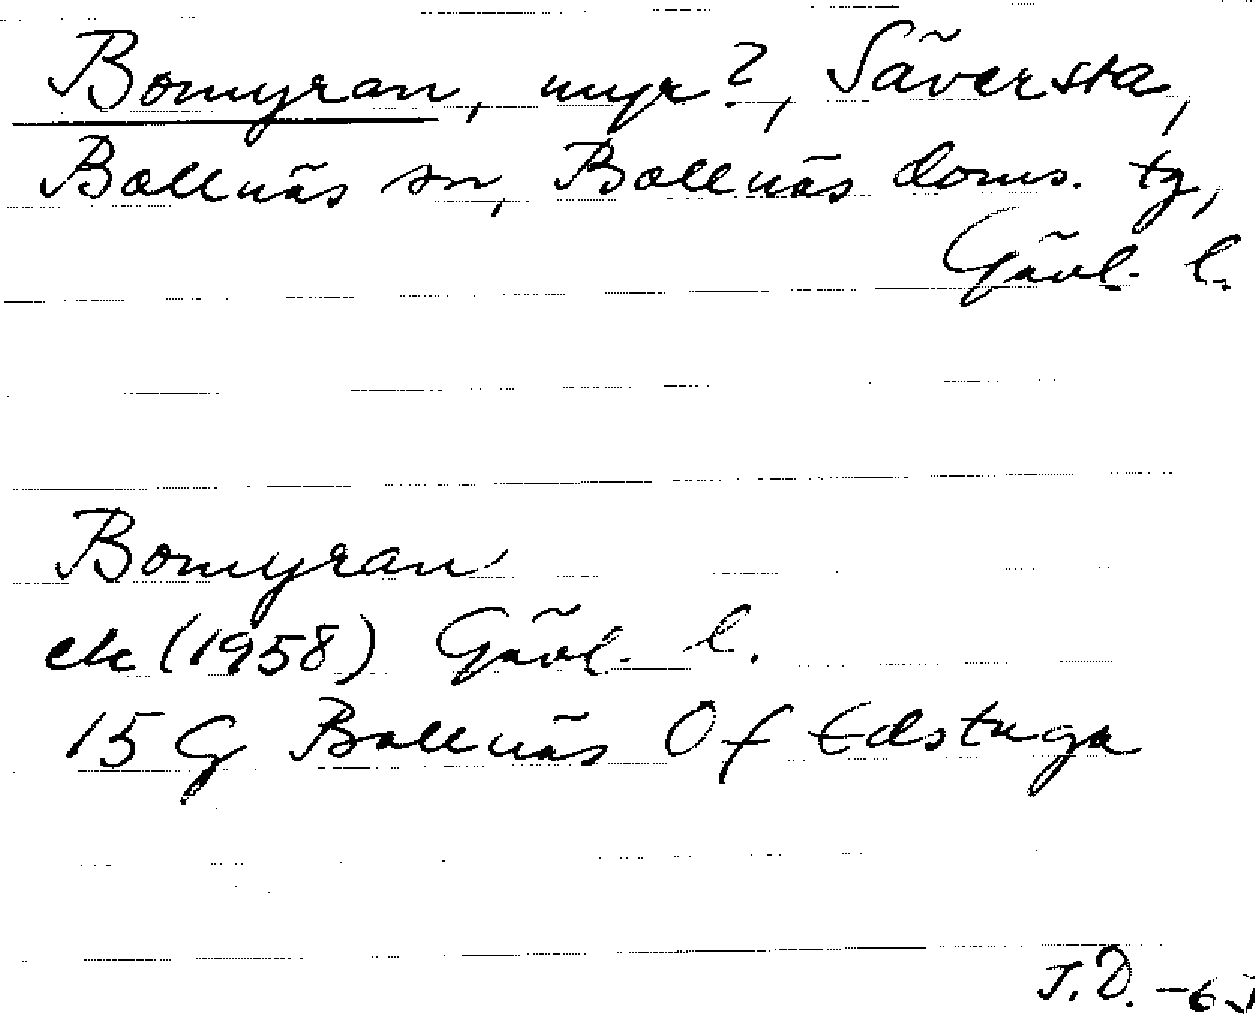 Bomyran, myr?, Säversta,
Bollnäs sn, Bollnäs doms. tg,
Gävl. l.
Bomyran
ek (1958) Gävl. l.
15 G Bollnäs Of Edstuga
J.D. -6